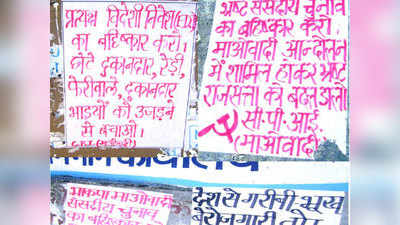 प्रत्यक्ष विदेशी निवेश(FDI)
का बहिष्कार करो।
छोटे दुकानदार, रेड़ी,
फेरीवाले, दुकानदार
भाइयों को उजड़ने
से बचाओ।
भ्रष्ट संसदीय चुनाव
का बहिष्कार करो।
माओवादी आन्दोलन
में शामिल होकर भ्रष्ट
राजसत्ता को बदल डालो
सी.पी.आई.
(माओवादी)
कार्यालय
भाकपा माओवादी
संसदीय चुनाव
का बहिष्कार
देश से गरीबी भूख
बेरोजगारी